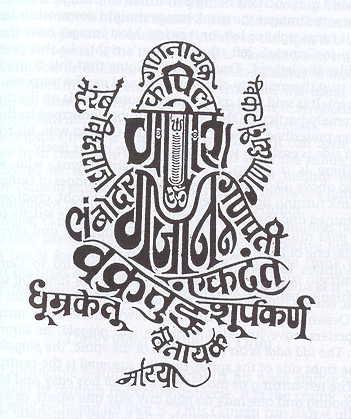 गणनायक
कपिल
हेरंब
गणेश
ॐ
लंबोदर
गजानन
गणपती
वक्रतुण्ड
एकदंत
धूम्रकेतू
शूर्पकर्ण
विनायक
मोरया